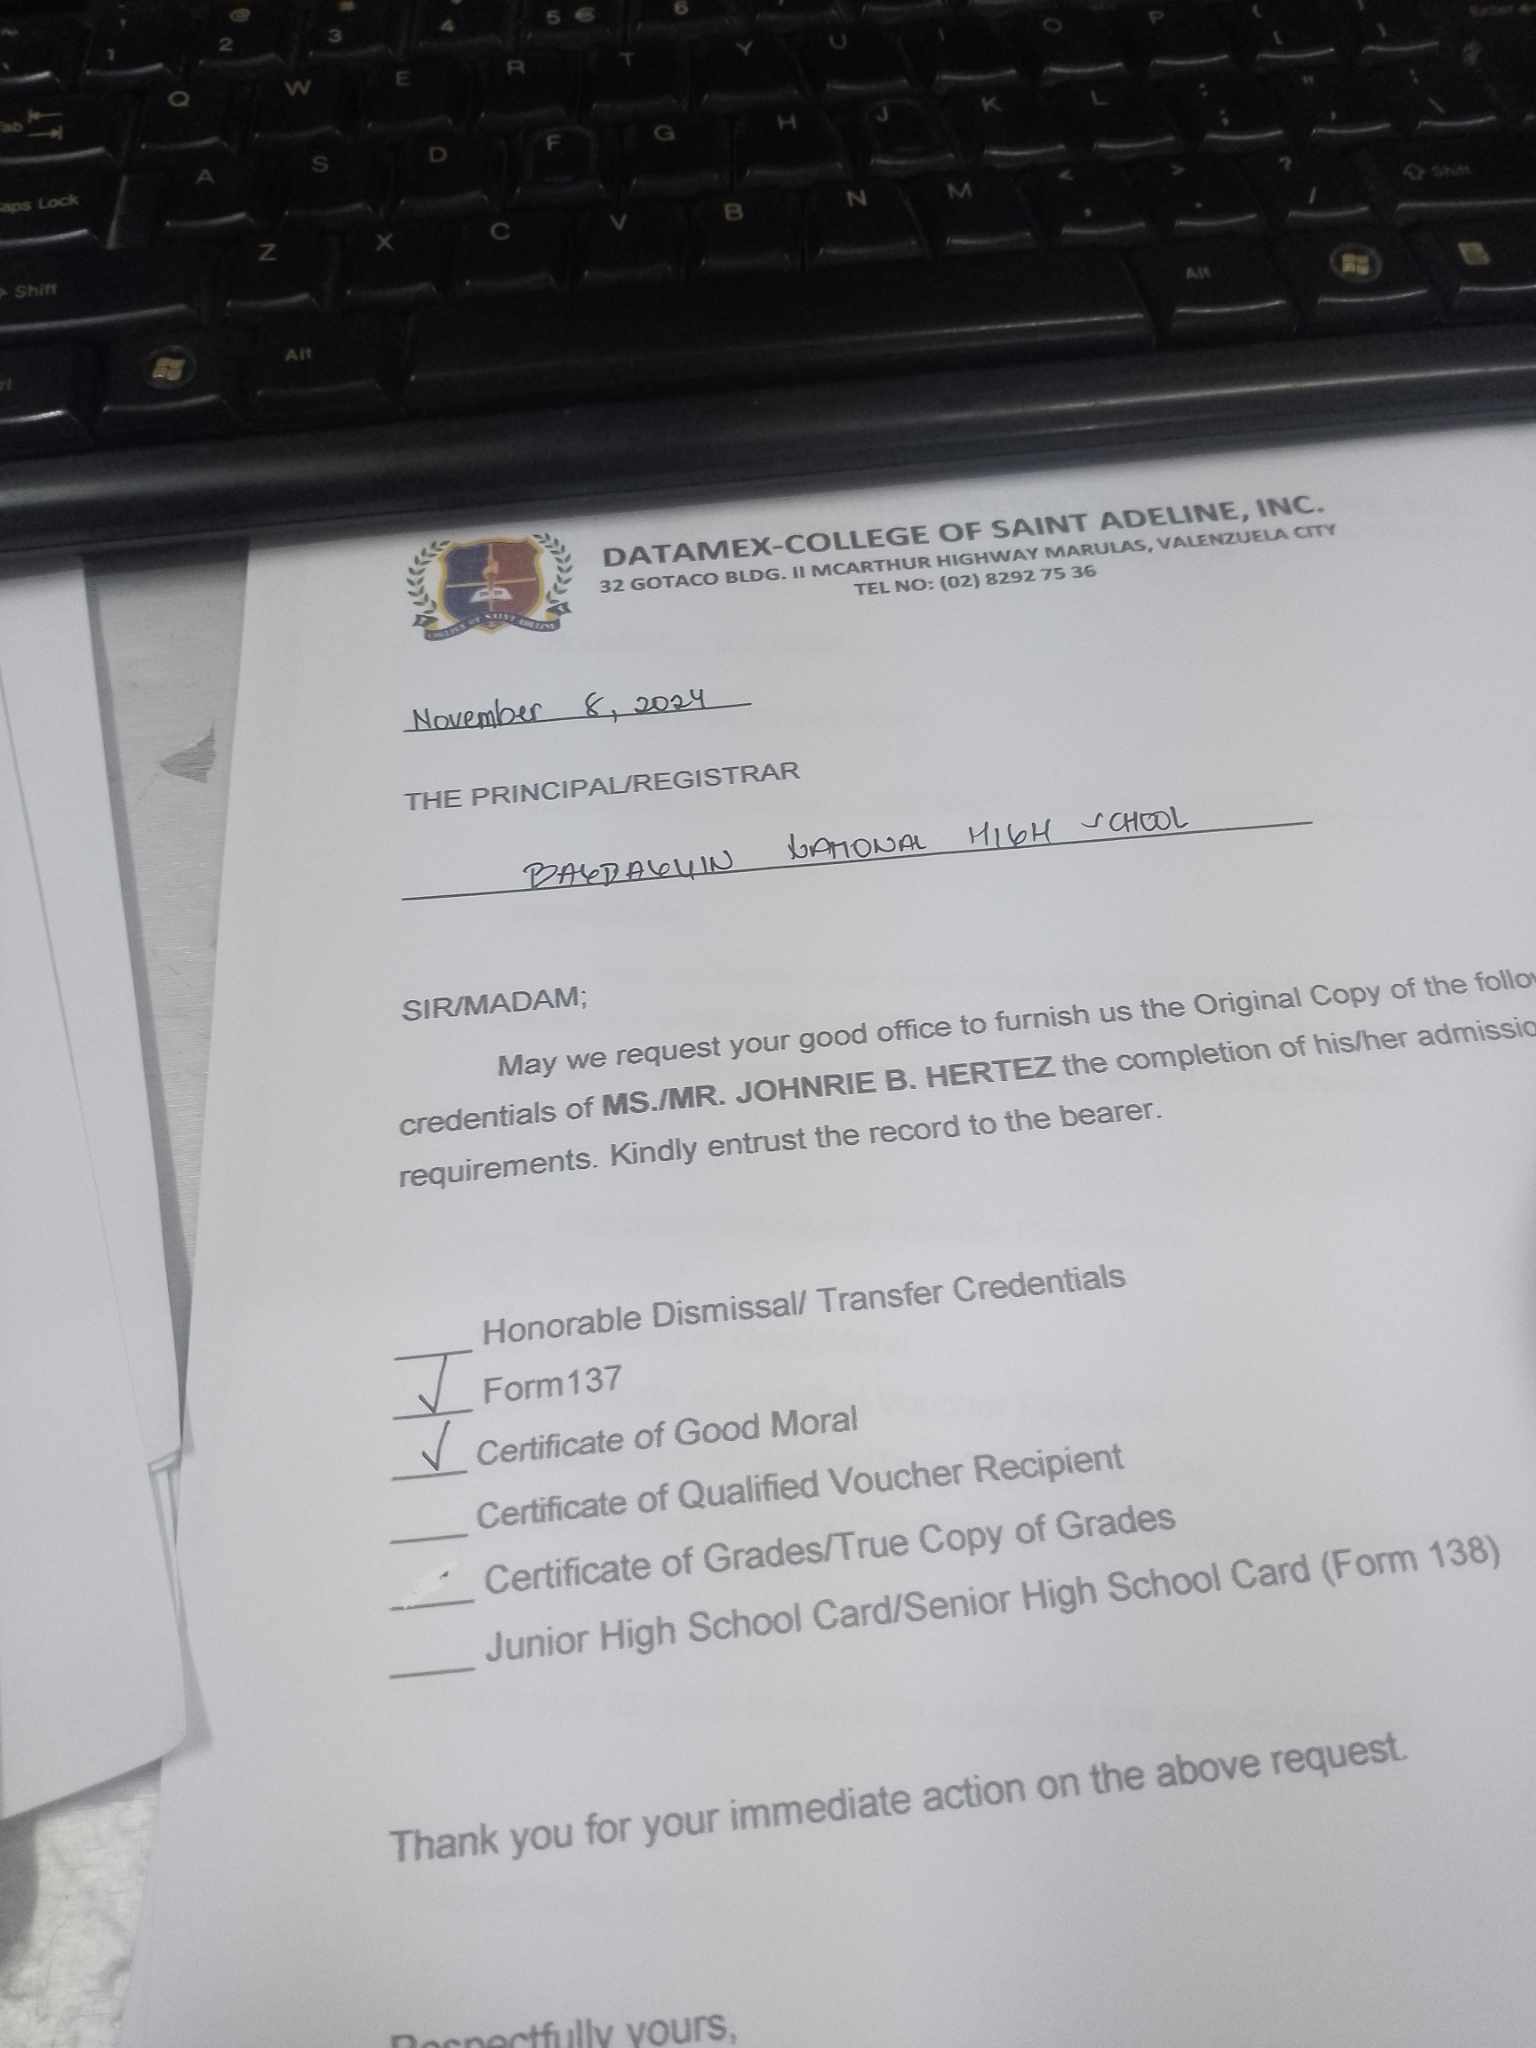 @ # 
1 2 3 4 5 € 6
Tab Q W E R T Y U I O P
Caps Lock A S D F G H J K L
Shift Z X C V B N M < , > . ? / Shift
Alt Alt
DATAMEX-COLLEGE OF SAINT ADELINE, INC.
32 GOTACO BLDG. II MCARTHUR HIGHWAY MARULAS, VALENZUELA CITY
TEL NO: (02) 8292 75 36
COLLEGE OF SAINT ADELINE
November 8, 2024
THE PRINCIPAL/REGISTRAR
BAGBAGUIN NATIONAL HIGH SCHOOL
SIR/MADAM;
May we request your good office to furnish us the Original Copy of the follow
credentials of MS./MR. JOHNRIE B. HERTEZ the completion of his/her admissio
requirements. Kindly entrust the record to the bearer.
____ Honorable Dismissal/ Transfer Credentials
✓ Form137
✓ Certificate of Good Moral
____ Certificate of Qualified Voucher Recipient
____ Certificate of Grades/True Copy of Grades
____ Junior High School Card/Senior High School Card (Form 138)
Thank you for your immediate action on the above request.
Respectfully yours,